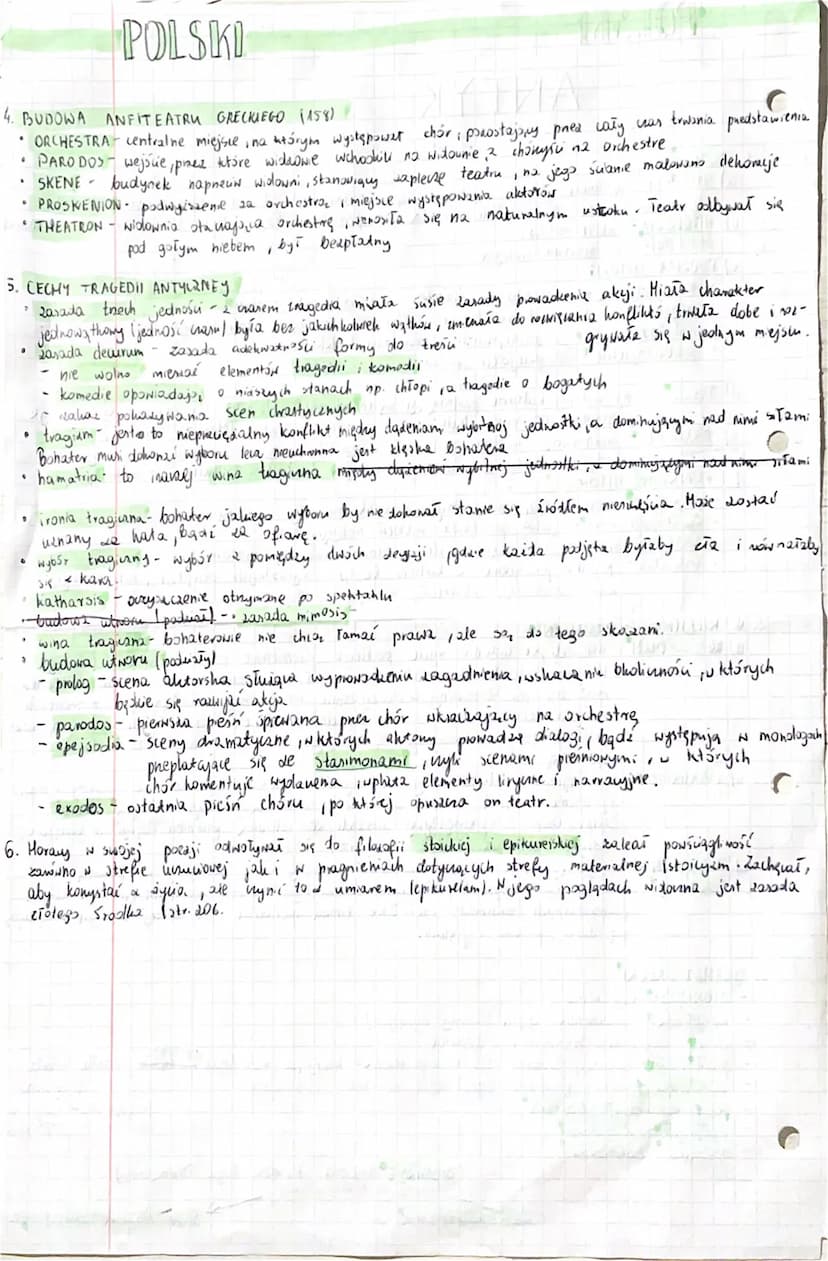 POLSKI
4. BUDOWA ANFITEATRU GRECKIEGO (158)
• ORCHESTRA - centralne miejsce, na którym występował chór, pozostający przez cały czas trwania przedstawienia
• PARODOS - wejście, przez które widzowie wchodzili na widownię, a chórzyści na orchestrę
• SKENE - budynek naprzeciw widowni, stanowiący zaplecze teatru, na jego ścianie malowano dekoracje
• PROSKENION - podwyższenie za orchestrą i miejsce występowania aktorów
• THEATRON - widownia otaczająca orchestrę, wznosiła się na naturalnym stoku. Teatr odbywał się
pod gołym niebem, był bezpłatny
5. CECHY TRAGEDII ANTYCZNEJ
• zasada trzech jedności - z czasem tragedia miała ścisłe zasady prowadzenia akcji. Miała charakter
jednowątkowy (jedność czasu) była bez jakichkolwiek wątków, zmierzała do rozwiązania konfliktó, trwała dobę i roz-
grywała się w jednym miejscu.
• zasada decorum - zasada adekwatności formy do treści
- nie wolno mieszać elementów tragedii i komedii
- komedie opowiadają o niższych stanach np. chłopi, a tragedie o bogatych
- zakaz pokazywania scen drastycznych
• tragizm - jest to nieprzezwyciężalny konflikt między dążeniami wybitnej jednostki, a dominującymi nad nimi siłami
Bohater musi dokonać wyboru lecz nieuchronna jest klęska bohatera
• hamartia - to inaczej wina tragiczna między dążeniami wybitnej jednostki, a dominującymi nad nimi siłami
• ironia tragiczna - bohater jakiego wyboru by nie dokonał, stanie się źródłem nieszczęścia. Może zostać
uznany za kata, bądź za ofiarę.
• wybór tragiczny - wybór z pomiędzy dwóch decyzji, gdzie każda podjęta byłaby zła i równałaby
się z karą.
• katharsis - oczyszczenie otrzymane po spektaklu
• budowa utworu (podział) - • zasada mimesis
• wina tragiczna - bohaterowie nie chcą łamać prawa, ale są do tego skazani.
• budowa utworu (podziały)
- prolog - scena aktorska służąca wyprowadzeniu zagadnienia, wskazanie okoliczności, w których
będzie się rozwijać akcja
- parodos - pierwsza pieśń śpiewana przez chór wkraczający na orchestrę
- epejsodia - sceny dramatyczne, w których aktorzy prowadzą dialogi, bądź występują w monologach
przeplatające się ze stasimonami, czyli scenami pieśniowymi, w których
chór komentuje wydarzenia, wplata elementy liryczne i narracyjne.
- exodos - ostatnia pieśń chóru, po której opuszcza on teatr.
6. Horacy w swojej poezji odwoływał się do filozofii stoickiej i epikurejskiej zalecał powściągliwość
zarówno w strefie uczuciowej jak i w pragnieniach dotyczących strefy materialnej (stoicyzm. Zachęcał,
aby korzystać z życia, ale czynić to z umiarem (epikureizm). W jego poglądach widoczna jest zasada
złotego środka (str. 206.